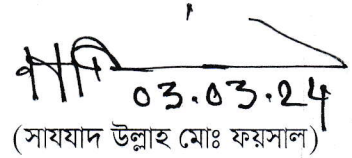 03.03.24
(সাযযাদ উল্লাহ মোঃ ফয়সাল)